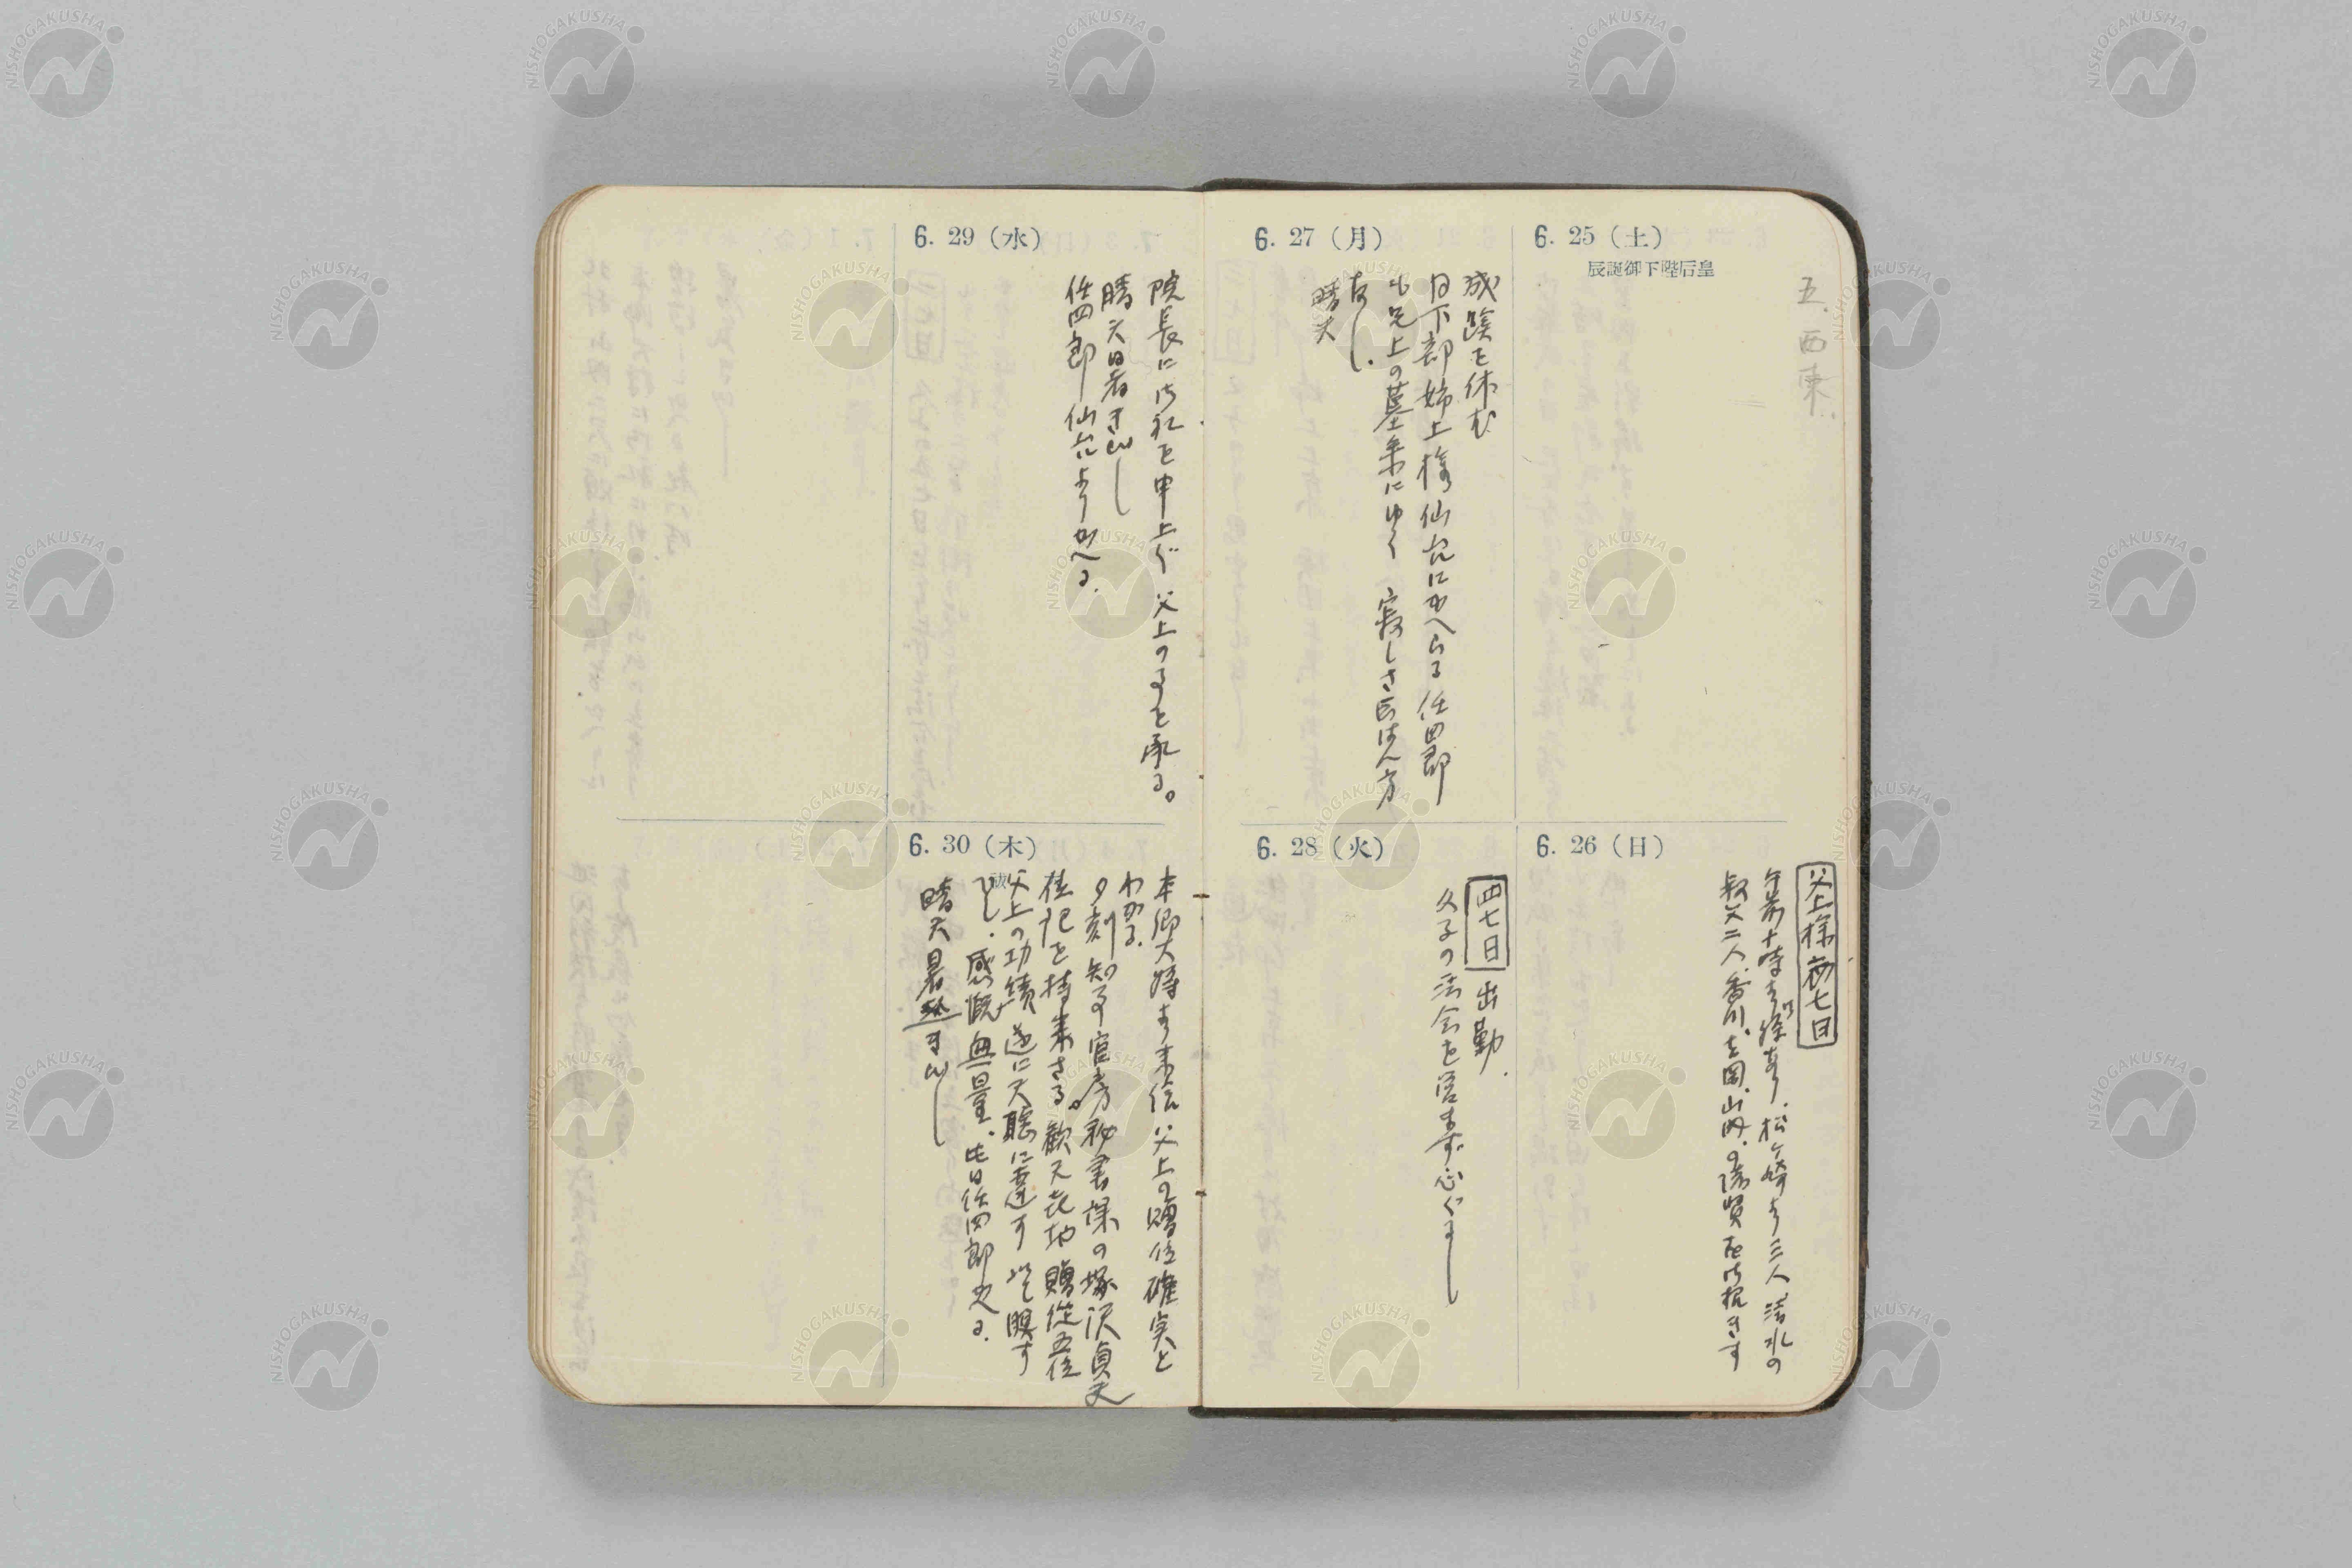 6. 25（土）
辰誕御下陛后皇
五、西東、
6. 26（日）
父上様初七日
午前十時より経あり、松ヶ崎より三人、清水の
叔父二人、香川、土岡、山内、の諸賢を御招きす
6. 27（月）
成蹊を休む
日下部姉上様仙台にかへらる 任四郎
と兄上の墓参にゆく 寂しさ云はん方
なし.
晴天
6. 28（火）
四七日 出勤.
久子の法会を営まず心ぐるし
6. 29（水）
院長に御礼を申上ぐ 父上のことを承る。
晴天 暑さきびし
任四郎仙台よりかへる.
6. 30（木）
本郷大将より来信 父上の贈位確実と
わかる.
夕刻 官房秘書課の塚沢貞夫
位記を持来さる。歓天喜地 贈従五位
父上の功績遂に天聴に達す 以て瞑す
べし. 感慨無量. 此日任四郎発る.
晴天 暑熱きびし